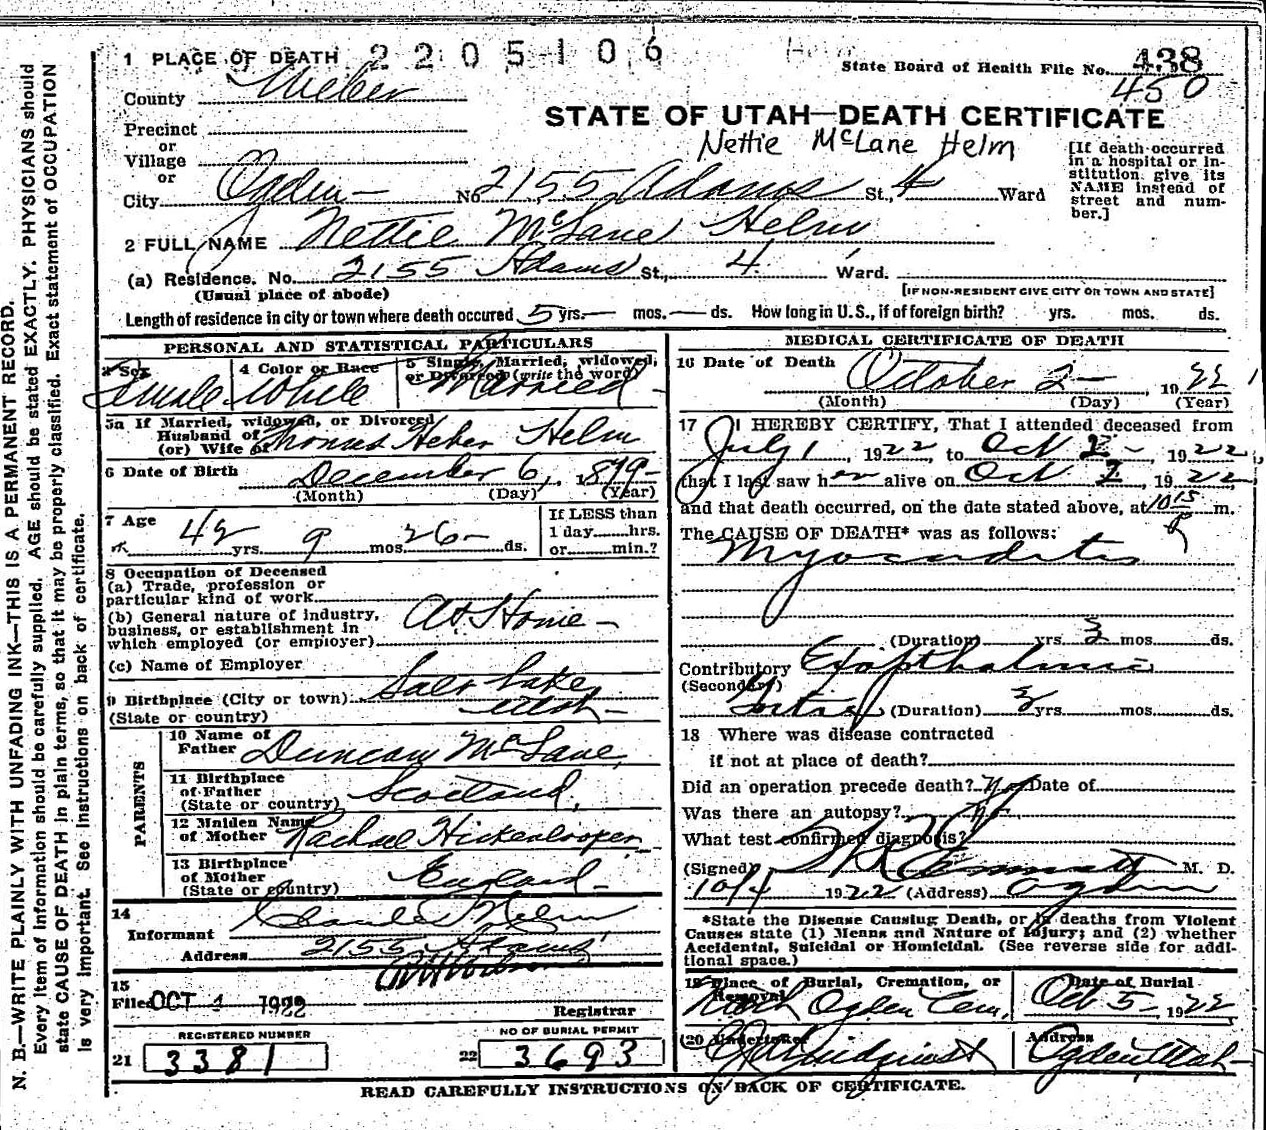 1 PLACE OF DEATH 2205106
State Board of Health File No. 438
450
County Weber
STATE OF UTAH—DEATH CERTIFICATE
Precinct
or
Village
or
Nettie McLane Helm
[If death occurred
in a hospital or in-
stitution give its
NAME instead of
street and num-
ber.]
City Ogden No 2155 Adams St., 4 Ward
2 FULL NAME Nettie McLane Helm
(a) Residence. No. 2155 Adams St., 4 Ward.
(Usual place of abode) [IF NON-RESIDENT GIVE CITY OR TOWN AND STATE]
Length of residence in city or town where death occured 5 yrs. — mos. — ds. How long in U.S., if of foreign birth? yrs. mos. ds.
PERSONAL AND STATISTICAL PARTICULARS
3 Sex Female
4 Color or Race White
5 Single, Married, widowed,
or Divorced (write the word) Married
5a If Married, widowed, or Divorced
Husband of
(or) Wife of Thomas Heber Helm
6 Date of Birth December 6, 1879
(Month) (Day) (Year)
7 Age 42 yrs. 9 mos. 26 ds.
If LESS than
1 day hrs.
or min.?
8 Occupation of Deceased
(a) Trade, profession or
particular kind of work
(b) General nature of industry,
business, or establishment in
which employed (or employer) At Home
(c) Name of Employer
9 Birthplace (City or town) Salt Lake
(State or country) Utah
PARENTS
10 Name of
Father Duncan McLane
11 Birthplace
of Father
(State or country) Scotland
12 Maiden Name
of Mother Rachael Hickenlooper
13 Birthplace
of Mother
(State or country) England
14
Informant Helm
Address 2155 Adams
15
Filed OCT 1922
Registrar
REGISTERED NUMBER
21 3381
NO OF BURIAL PERMIT
22 3693
MEDICAL CERTIFICATE OF DEATH
16 Date of Death October 2 1922
(Month) (Day) (Year)
17 I HEREBY CERTIFY, That I attended deceased from
July 1, 1922, to Oct 2 1922,
that I last saw her alive on Oct 2, 1922,
and that death occurred, on the date stated above, at 10 15 P m.
The CAUSE OF DEATH* was as follows:
Myocarditis
(Duration) yrs. 3 mos. ds.
Contributory Exopthalmic
(Secondary)
Goitre (Duration) 3 yrs. mos. ds.
18 Where was disease contracted
if not at place of death?
Did an operation precede death? No Date of
Was there an autopsy? No
What test confirmed diagnosis?
(Signed) M. D.
10/4 1922 (Address) Ogden
*State the Disease Causing Death, or in deaths from Violent
Causes state (1) Means and Nature of Injury; and (2) whether
Accidental, Suicidal or Homicidal. (See reverse side for addi-
tional space.)
19 Place of Burial, Cremation, or
Removal North Ogden Cem.
Date of Burial
Oct 5 1922
(20 Undertaker
Address
Ogden Utah
READ CAREFULLY INSTRUCTIONS ON BACK OF CERTIFICATE.
N. B.—WRITE PLAINLY WITH UNFADING INK—THIS IS A PERMANENT RECORD.
Every item of information should be carefully supplied. AGE should be stated EXACTLY. PHYSICIANS should
state CAUSE OF DEATH in plain terms, so that it may be properly classified. Exact statement of OCCUPATION
is very important. See instructions on back of certificate.